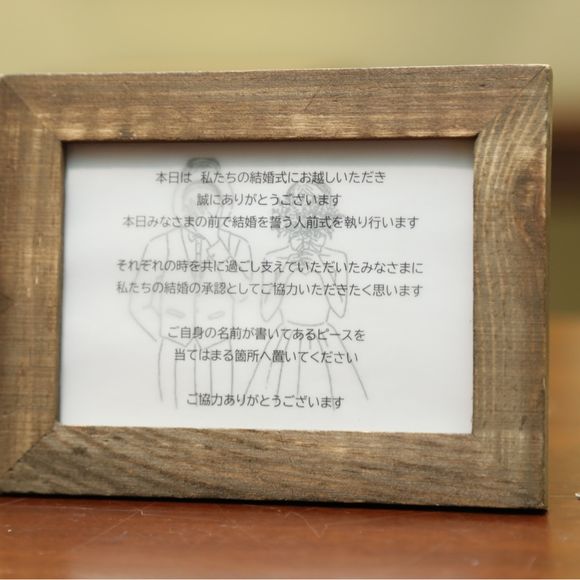 本日は 私たちの結婚式にお越しいただき
誠にありがとうございます
本日みなさまの前で結婚を誓う人前式を執り行います
それぞれの時を共に過ごし支えていただいたみなさまに
私たちの結婚の承認としてご協力いただきたく思います
ご自身の名前が書いてあるピースを
当てはまる箇所へ置いてください
ご協力ありがとうございます